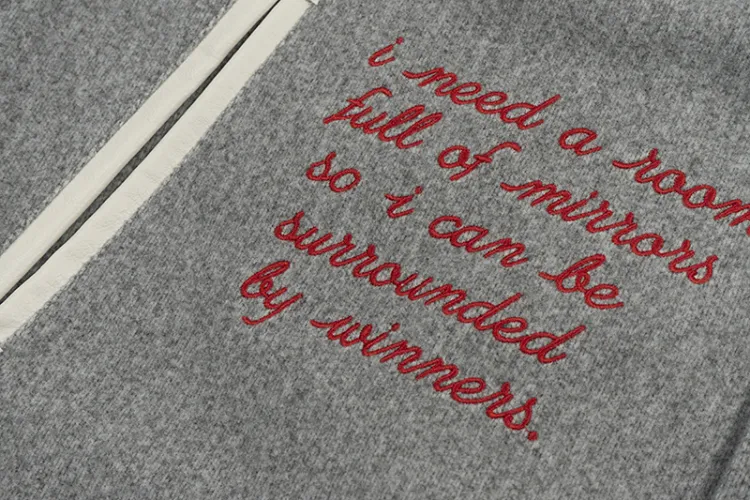 i need a room
full of mirrors
so i can be
surrounded
by winners.